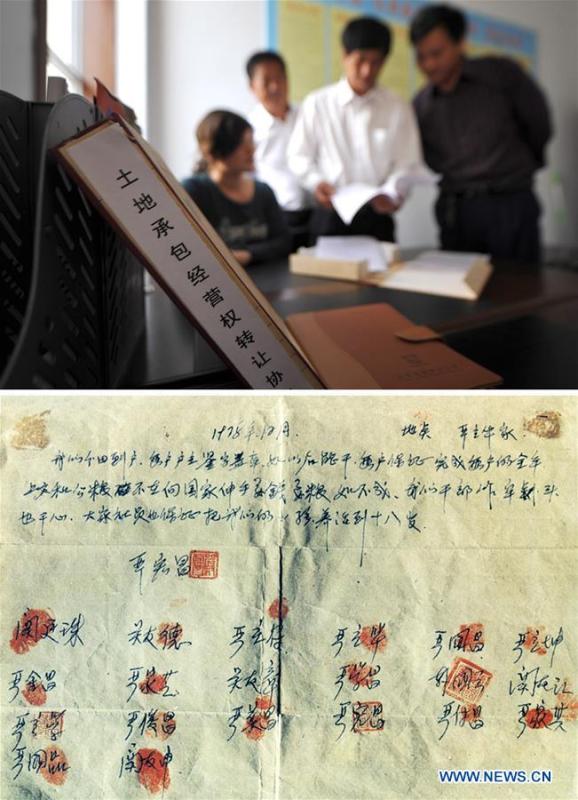 土地承包经营权转让协
1978年12月. 地点 严立华家.
我们分田到户,每户户主签字盖章,如以后能干,每户保证完成每户的全年
上交和公粮不在向国家伸手要钱要粮,如不成,我们干部作牢刹头
也干心,大家社员也保证把我们的小孩养活到十八岁.
严宏昌
关廷珠 关友德 严立符 严立华 严国昌 严立坤
严金昌 严家芝 关友章 严学昌 韩国云 关友江
严立学 严俊昌 严美昌 严宏昌 严付昌 严家其
严国品 关友申
WWW.NEWS.CN